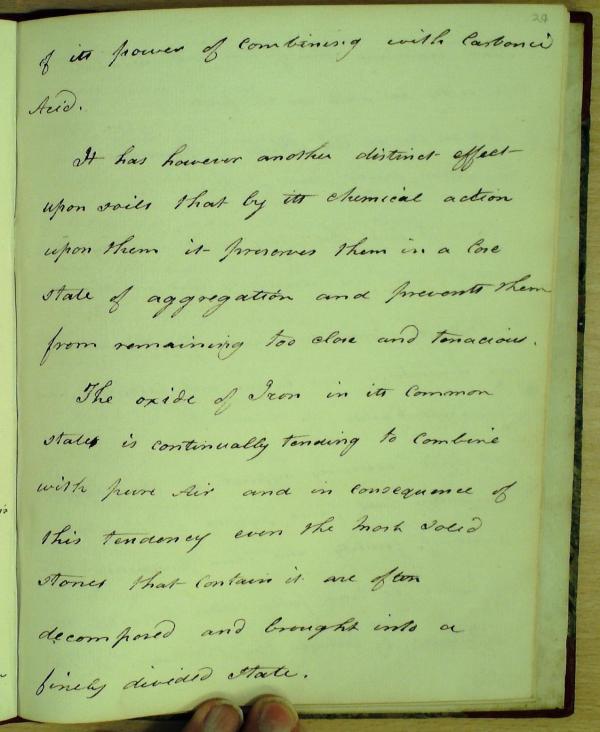 24
of its power of combining with Carbonic
Acid.
It has however another distinct effect
upon soils that by its chemical action
upon them it preserves them in a lose
state of aggregation and prevents them
from remaining too close and tenacious.
The oxide of Iron in its common
state is continually tending to combine
with pure Air and in consequence of
this tendency even the most solid
stones that contain it are often
decomposed and brought into a
finely divided state.